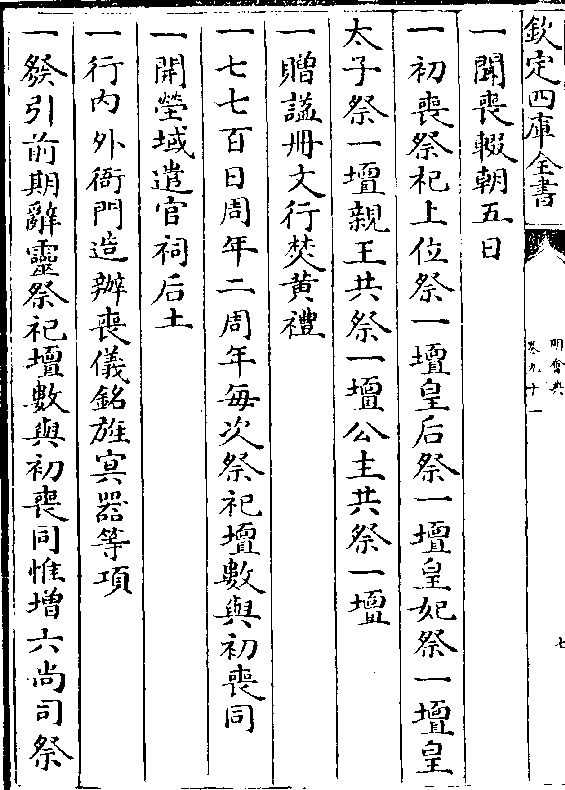 欽定四庫全書
明會典
卷九十一
七
一聞喪輟朝五日
一初喪祭祀上位祭一壇皇后祭一壇皇妃祭一壇皇
太子祭一壇親王共祭一壇公主共祭一壇
一贈諡冊文行焚黃禮
一七七百日周年二周年每次祭祀壇數與初喪同
一開塋域遣官祠后土
一行內外衙門造辦喪儀銘旌冥器等項
一發引前期辭靈祭祀壇數與初喪同惟增六尚司祭